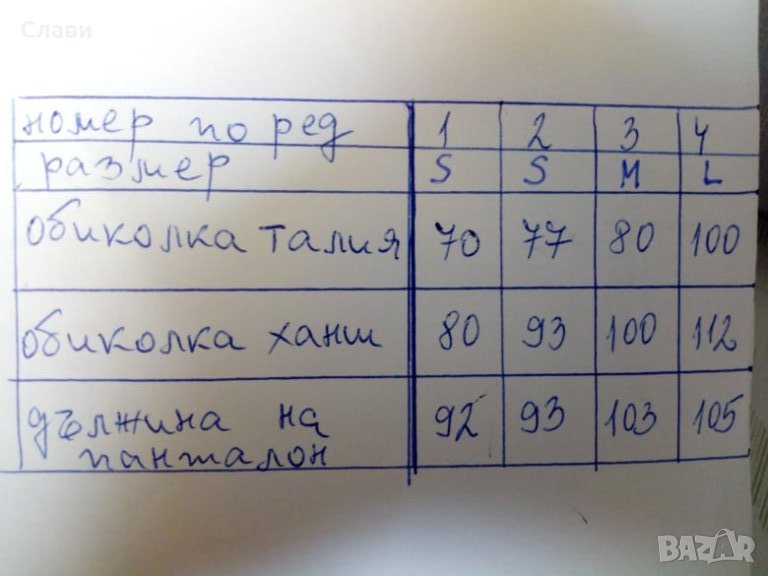 Слави
номер по ред 1 2 3 4
размер S S M L
обиколка талия 70 77 80 100
обиколка ханш 80 93 100 112
дължина на 92 93 103 105
панталон
BAZAR